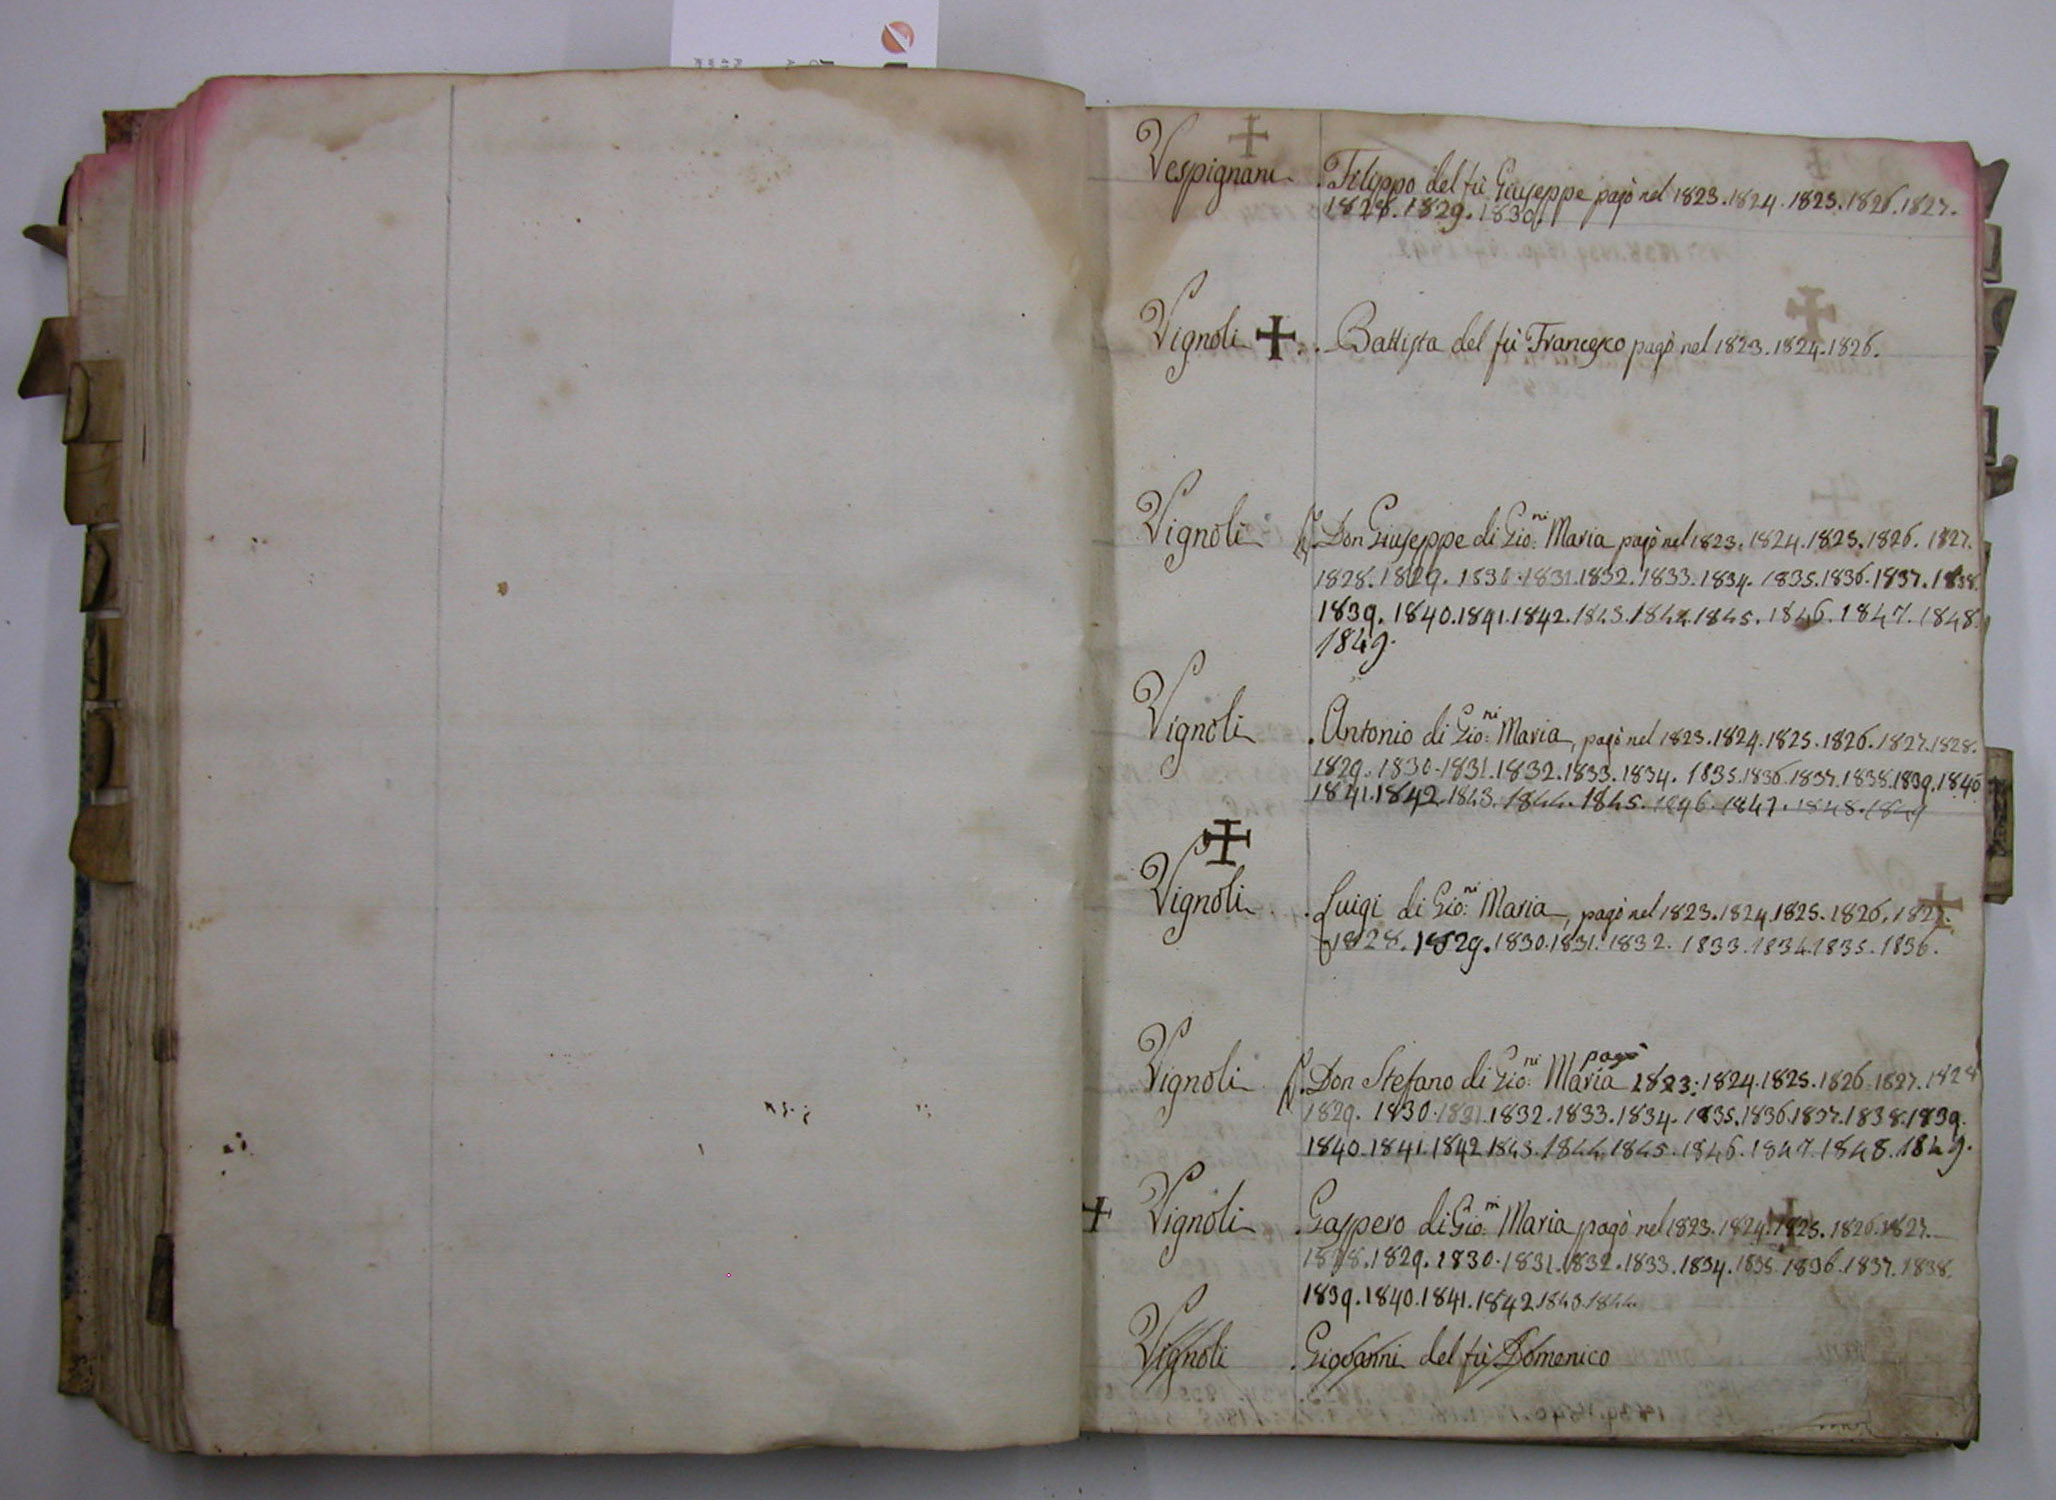 Vespignani Filippo del fù Giuseppe pagò nel 1823. 1824. 1825. 1826. 1827.
1828. 1829. 1830.
Vignoli . Battista del fù Francesco pagò nel 1823. 1824. 1826.
Vignoli Don Giuseppe di Gio:ni Maria pagò nel 1823. 1824. 1825. 1826. 1827.
1828. 1829. 1830. 1831. 1832. 1833. 1834. 1835. 1836. 1837. 1838.
1839. 1840. 1841. 1842. 1843. 1844. 1845. 1846. 1847. 1848.
1849.
Vignoli . Antonio di Gio:ni Maria, pagò nel 1823. 1824. 1825. 1826. 1827. 1828.
1829. 1830. 1831. 1832. 1833. 1834. 1835. 1836. 1837. 1838. 1839. 1840
1841. 1842. 1843. 1844. 1845. 1846. 1847. 1848. 1849
Vignoli . Luigi di Gio:ni Maria, pagò nel 1823. 1824. 1825. 1826. 1827.
1828. 1829. 1830. 1831. 1832. 1833. 1834. 1835. 1836.
Vignoli Don Stefano di Gio:ni Maria pagò 1823. 1824. 1825. 1826. 1827. 1828
1829. 1830. 1831. 1832. 1833. 1834. 1835. 1836. 1837. 1838. 1839.
1840. 1841. 1842. 1843. 1844. 1845. 1846. 1847. 1848. 1849.
Vignoli . Gaspero di Gio:ni Maria pagò nel 1823. 1824. 1825. 1826. 1827.
1828. 1829. 1830. 1831. 1832. 1833. 1834. 1835. 1836. 1837. 1838.
1839. 1840. 1841. 1842. 1843. 1844.
Vignoli . Giovanni del fù Domenico